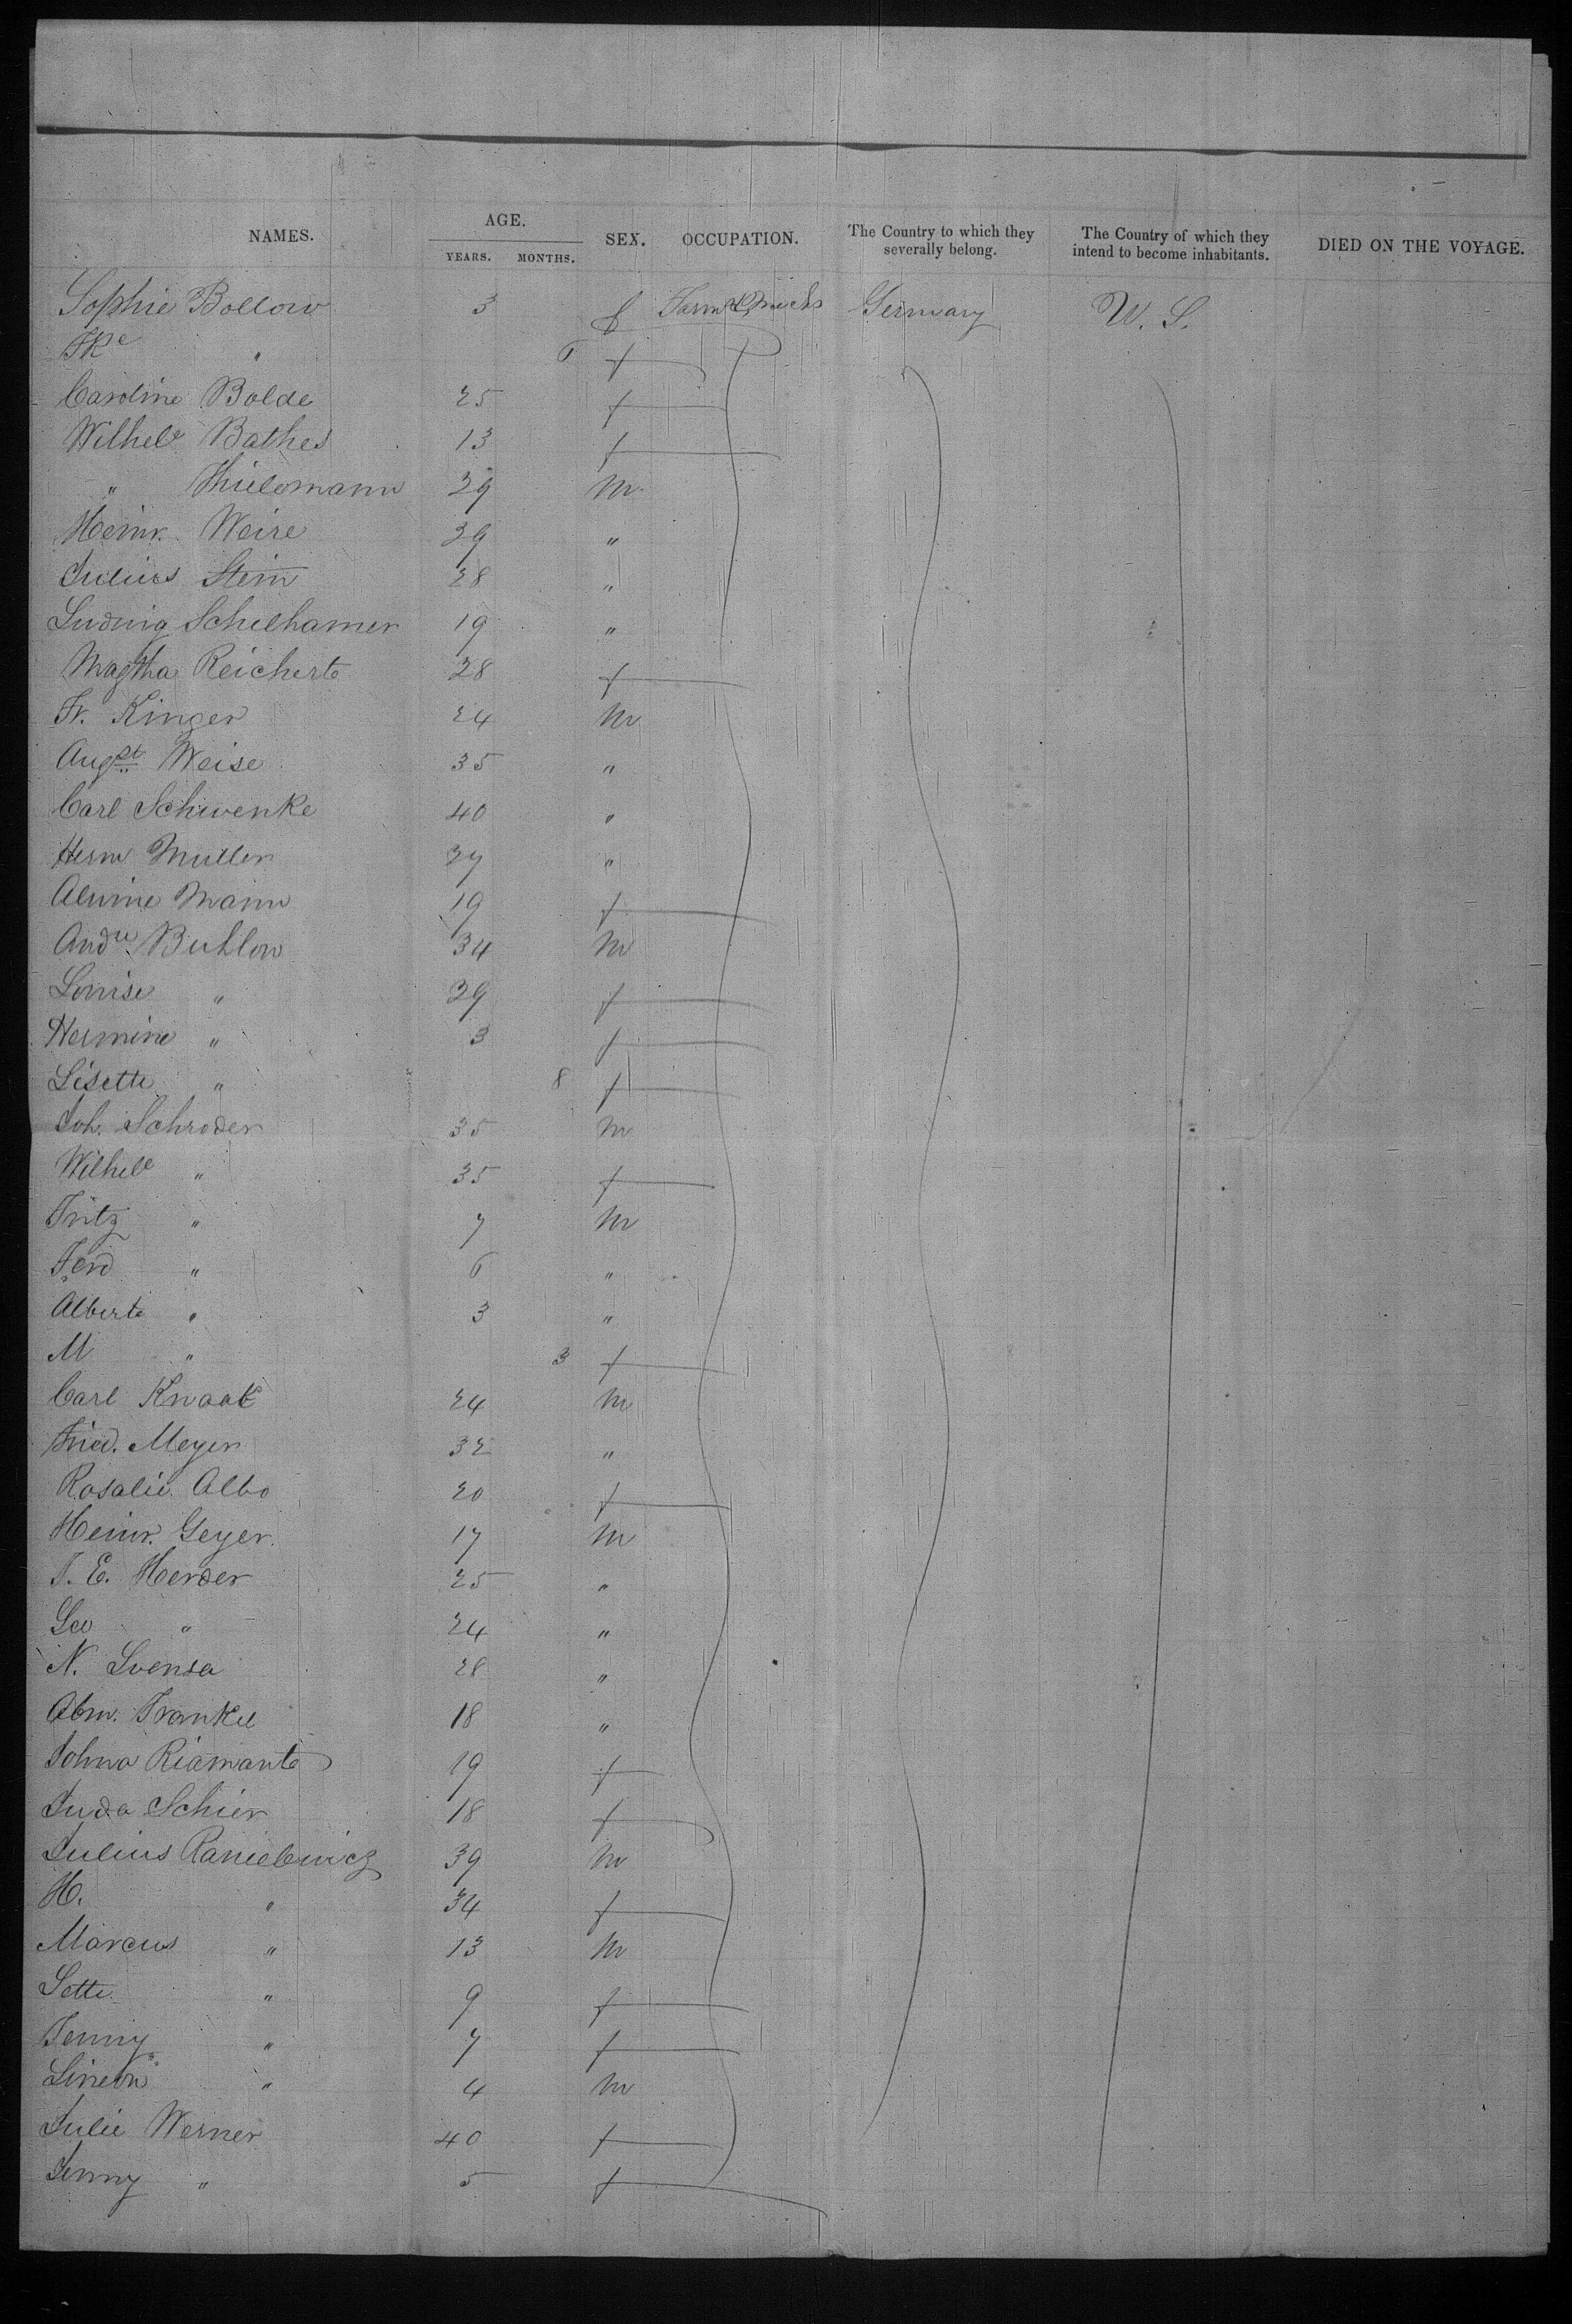 NAMES. AGE. SEX. OCCUPATION. The Country to which they severally belong. The Country of which they intend to become inhabitants. DIED ON THE VOYAGE.
YEARS. MONTHS.
Sophie Bollow 3 f Farm & Mechs Germany U. S.
FKe " 6 f
Caroline Bolde 25 f
Wilhele Bathes 13 f
" Thielemann 29 m
Heinr. Weire 39 "
Julius Stein 28 "
Ludwig Schelhamer 19 "
Magtha Reichert 28 f
Fr. Kinger 24 m
Augst Weise 35 "
Carl Schwenke 40 "
Herm Muller 37 "
Alwine Mann 19 f
Andre Buhlow 34 m
Louise " 29 f
Hermine " 3 f
Lisette " 8 f
Joh. Schroder 35 m
Wilhele " 35 f
Fritz " 7 m
Ferd " 6 "
Albert " 3 "
M " 3 f
Carl Knaak 24 m
Fried. Meyer 32 "
Rosalie Albo 20 f
Heinr. Geyer 17 m
J. E. Herder 25 "
Leo " 24 "
N. Svensa 28 "
Abm. Frankel 18 "
Johna Riamant 19 f
Juda Schier 18 f
Julius Ranielewicz 39 m
H. " 34 f
Marcus " 13 m
Sette " 9 f
Jenny " 7 f
Simeon " 4 m
Julie Werner 40 f
Jenny " 5 f